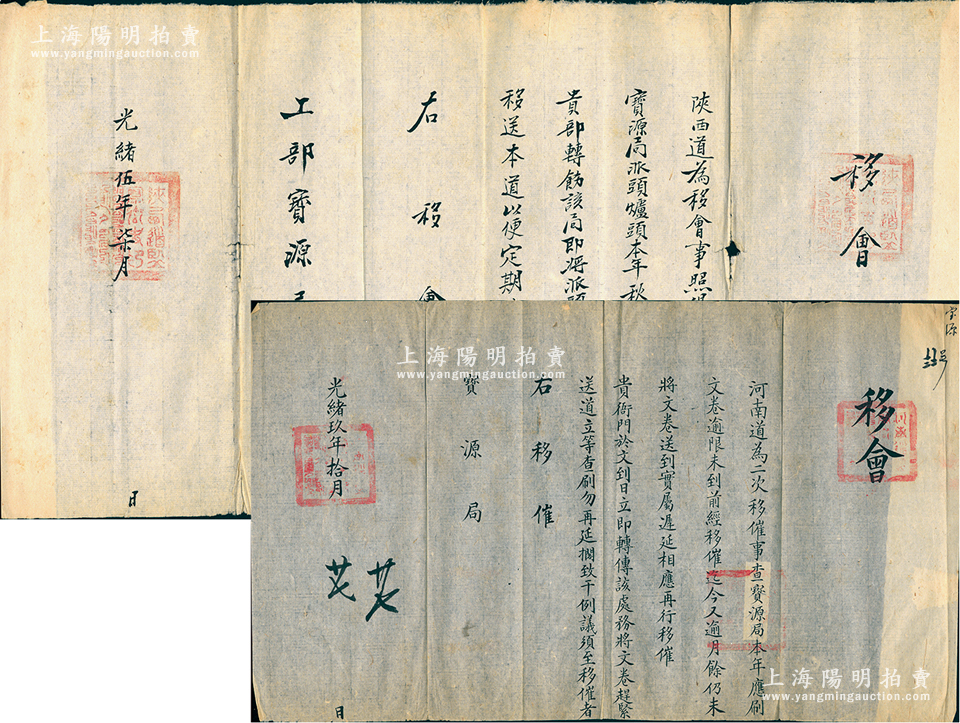 上海陽明拍賣
www.yangmingauction.com
上海陽明拍賣
www.yangmingauction.com
移會
陝西道為移會事照得
寶源局派頭爐頭本年秋
貴部轉飭該局即將派頭
移送本道以便定期
右移會
工部寶源
光緒伍年柒月
日
上海陽明拍賣
www.yangmingauction.com
移會
河南道為二次移催事查寶源局本年應刷
文卷逾限未到前經移催迄今又逾月餘仍未
將文卷送到實屬遲延相應再行移催
貴衙門於文到日立即轉傳該處務將文卷趕緊
送道立等查刷勿再延擱致干例議須至移催者
右移催
寶源局
光緒玖年拾月
日
上海陽明拍賣
www.yangmingauction.com